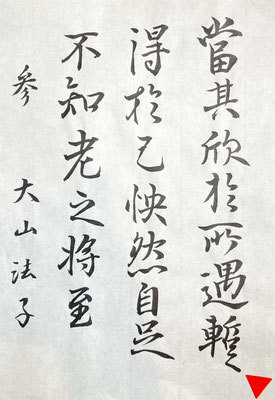 當其欣於所遇暫
得於己怏然自足
不知老之将至
参 大山法子